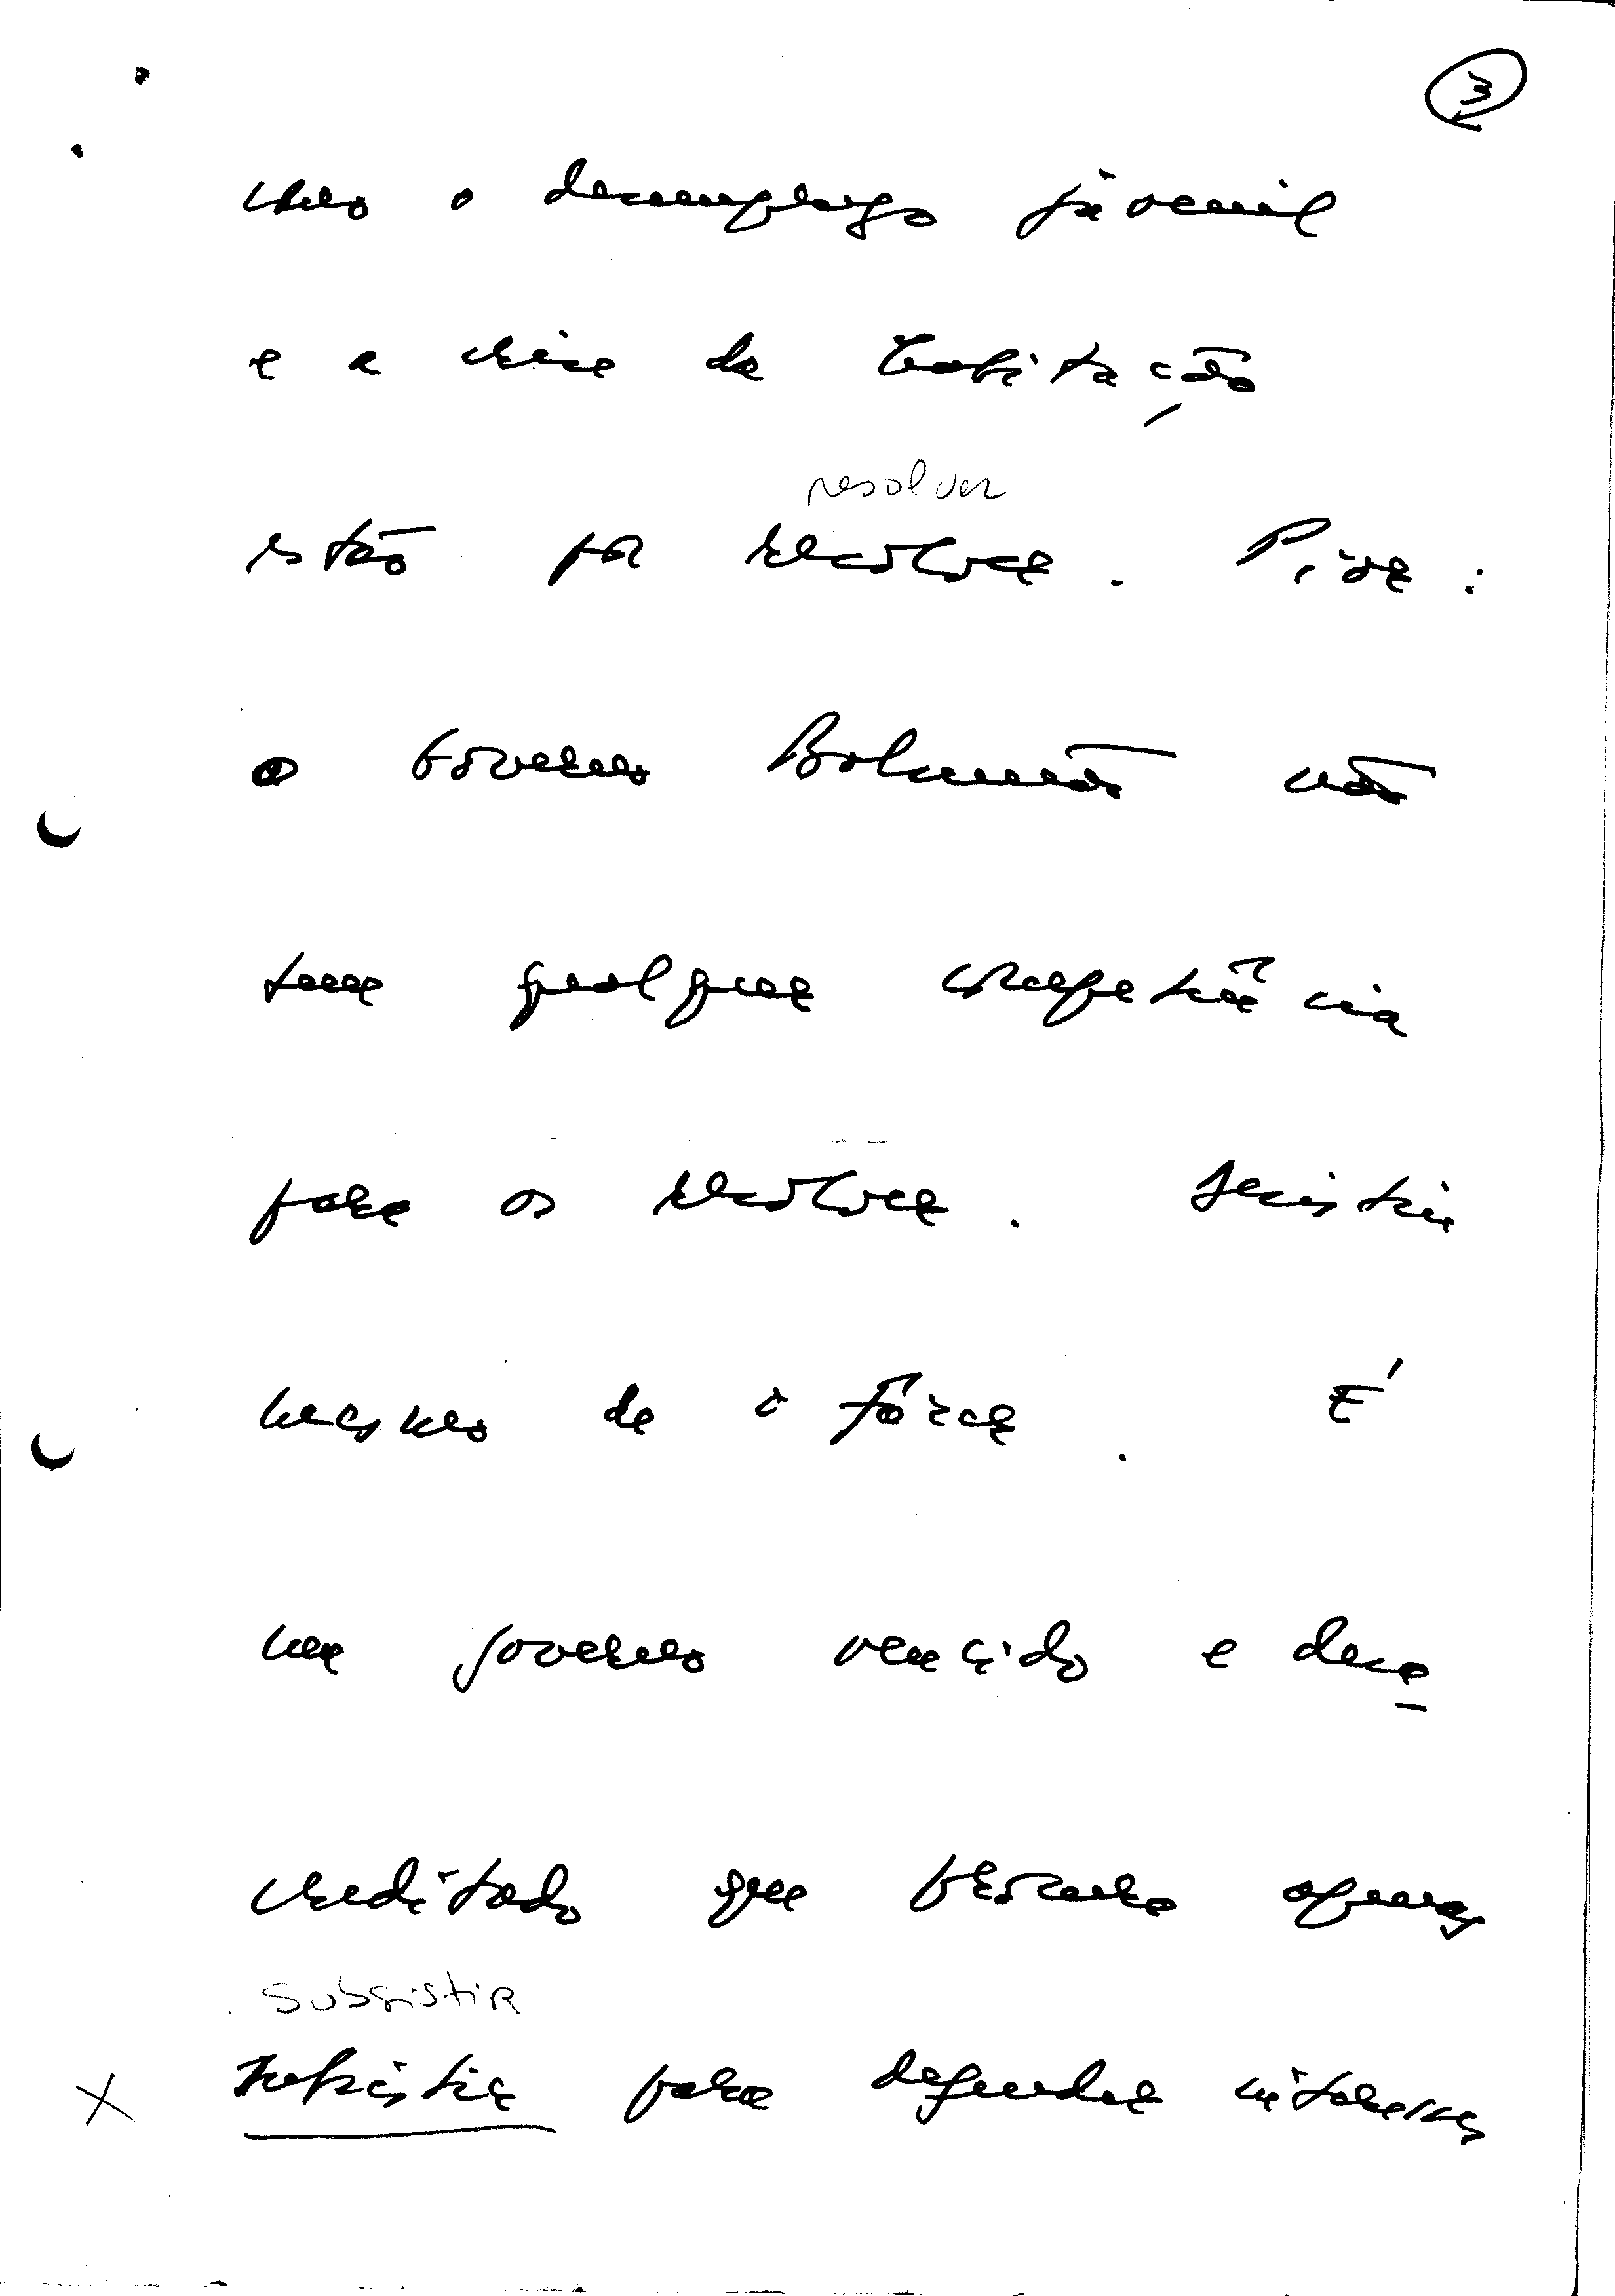 3
como o desemprego juvenil
e a crise da habitação
resolver
estão por resolver. Pior:
o Governo Balsemão não
tem qualquer competência
para os resolver.
mesmo de força. É
um governo vencido e desa
creditado que procura apenas
subsistir
subsistir para defender interesses